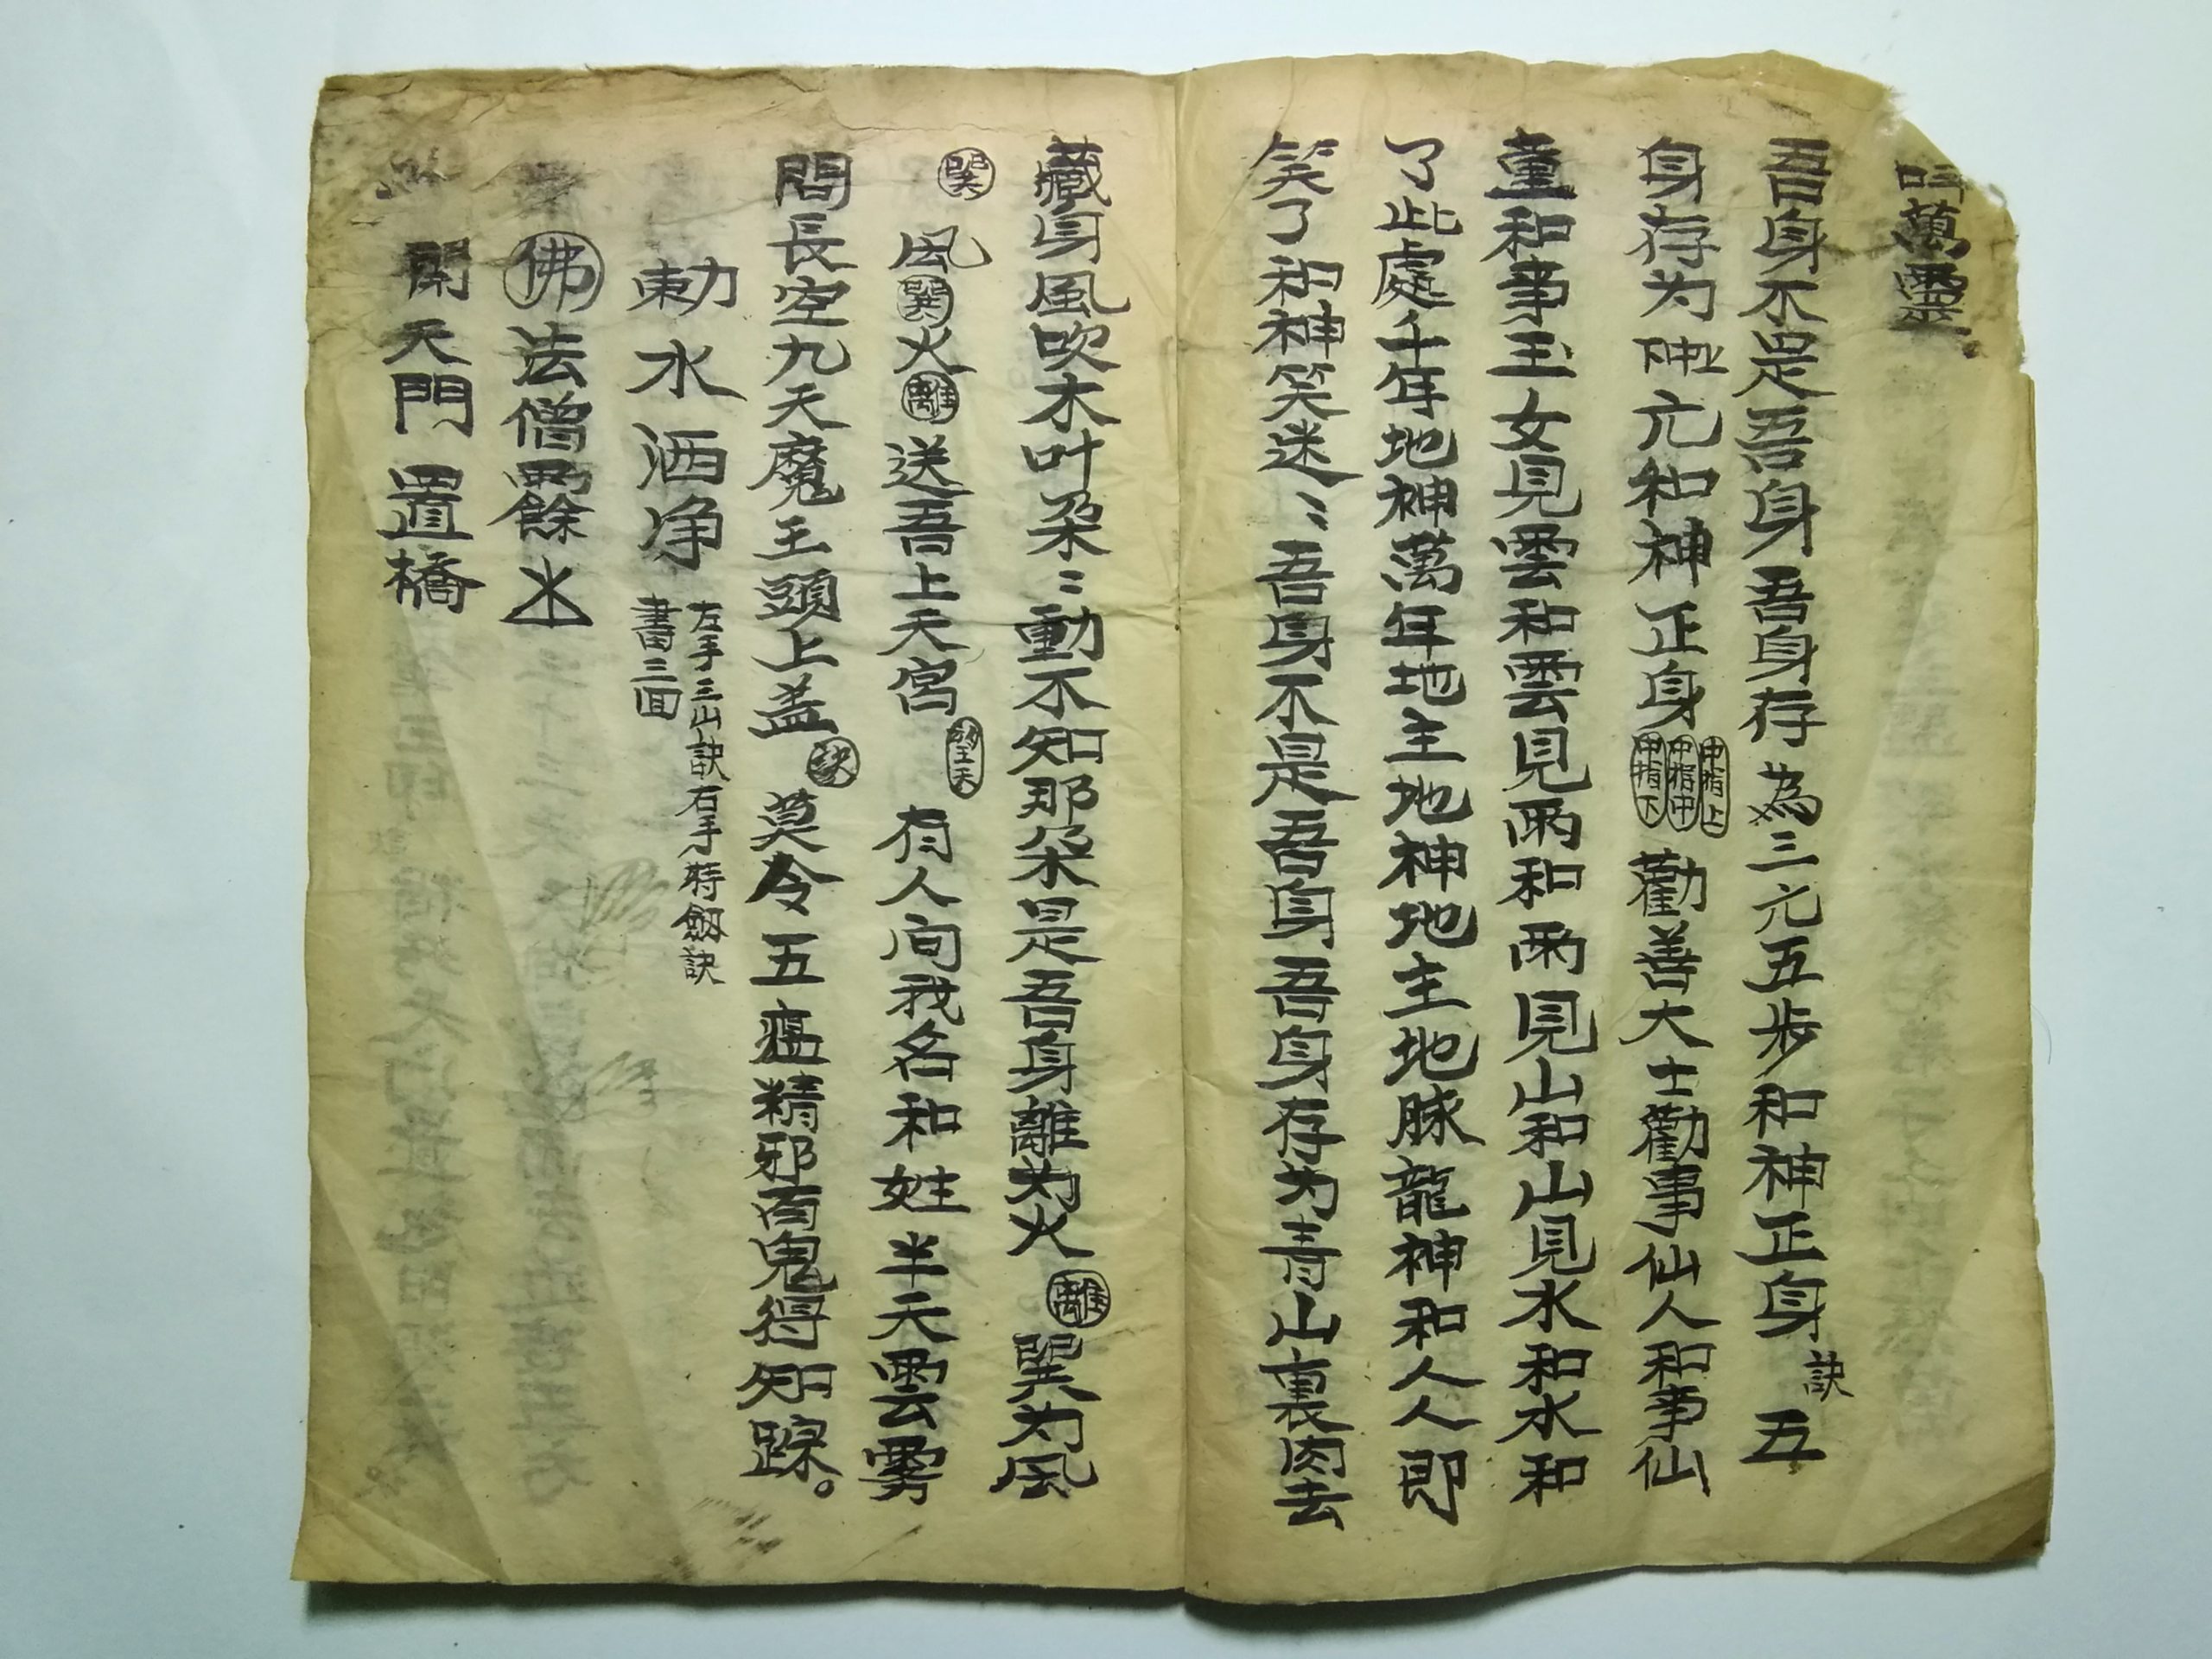 叫萬靈
吾身不是吾身吾身存為三元五步和神正身訣五
身存为呭元和神正身中指上中指中中指下勸善大士勸事仙人和事仙
童和事玉女見雲和雲見雨和雨見山和山見水和水和
了此處千年地神萬年地主地神地主地脉龍神和人人即
笑了和神笑迷〻吾身不是吾身吾身存为青山裏内去
藏身風吹木叶朶〻動不知那朶是吾身離为火離巽为风
巽风巽火離送吾上天宮望天有人问我名和姓半天雲霧
問長空九天魔王頭上盖訣莫令五瘟精邪百鬼得知踪。
勅水洒净左手三山訣右手持劔訣
書三面
佛法僧
開天門置橋